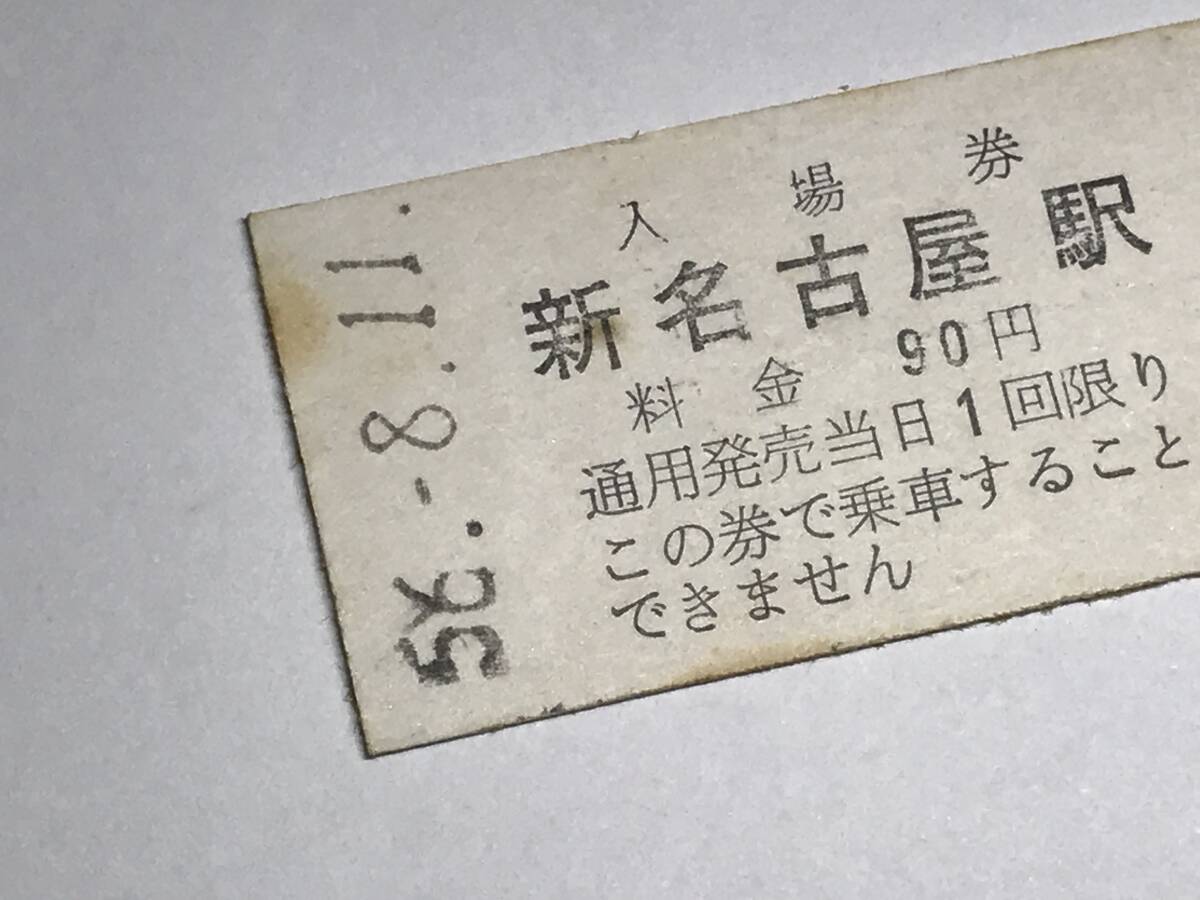 入場券
新名古屋駅
料金 90円
通用発売当日1回限り
この券で乗車すること
できません
-8.11.